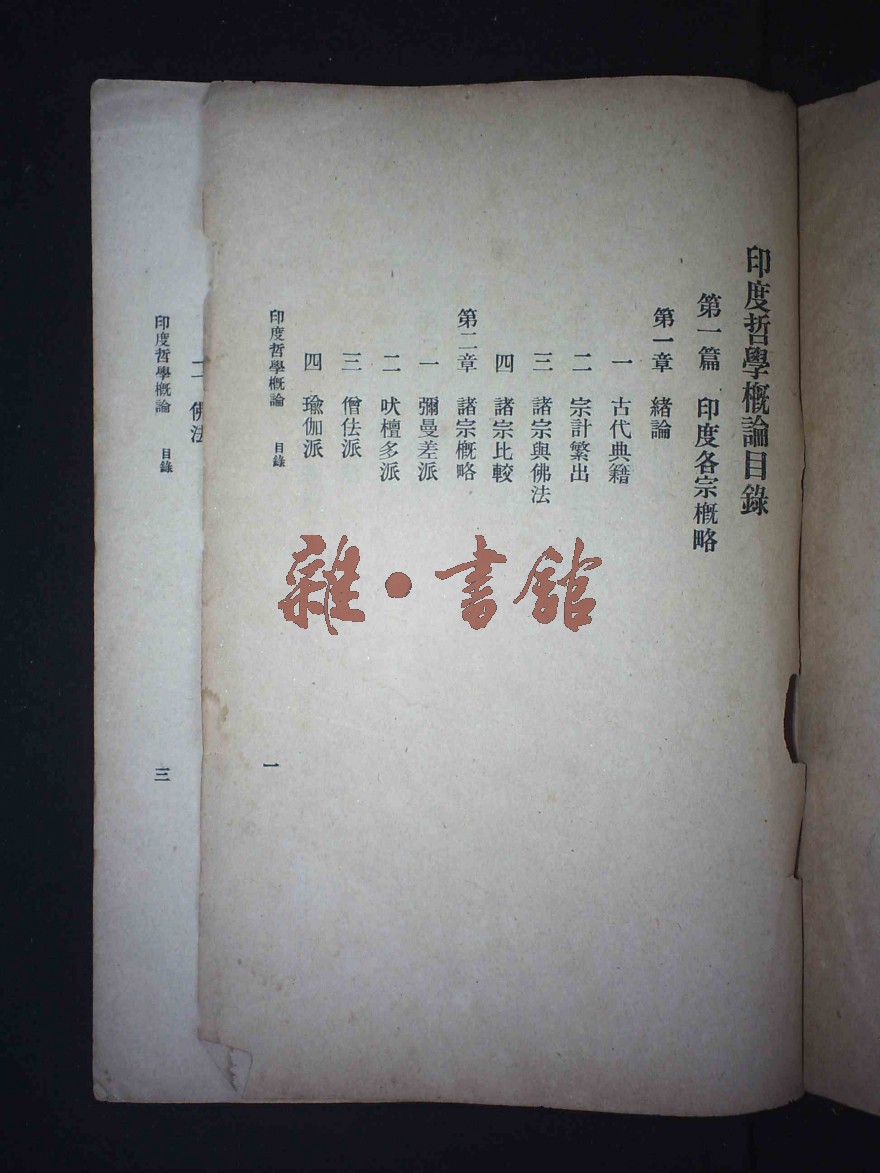 印度哲學概論目錄
第一篇 印度各宗概略
第一章 緒論
一 古代典籍
二 宗計繁出
三 諸宗與佛法
四 諸宗比較
第二章 諸宗概略
一 彌曼差派
二 吠檀多派
三 僧佉派
四 瑜伽派
印度哲學概論 目錄 一
二 佛法
印度哲學概論 目錄 三
雜·書館